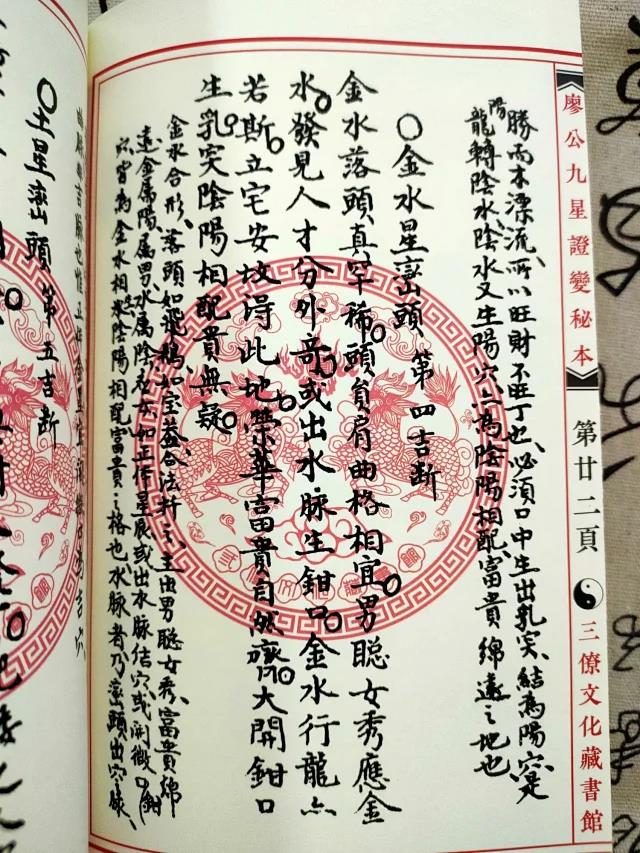 廖公九星證變秘本
第廿二頁
三僚文化藏書館
勝而木漂流、所以旺財不旺丁也、必須口中生出乳突、結為陽穴、是
陽龍轉陰水、陰水又生陽穴、為陰陽相配、富貴綿遠之地也
○金水星巒頭 第四吉斷
金水落頭真罕稀 頭負肩曲格相宜 男聰女秀應金
水 發見人才分外奇 或出水脉生鉗口 金水行龍亦
若斯 立宅安坟得此地 榮華富貴自然齊 大開鉗口
生乳突 陰陽相配貴無疑
金水合形、落頭如飛鵝、如宝盖、合法扦之、主出男聰女秀、富貴綿
遠、金属陽、属男、水属陰、女、如正作星辰、或出水脉结穴、或開微口鉗
穴、皆為金水相、陰陽相配、富貴之格也、水脉者、乃巒頭出穴脉、
○土星巒頭 第五吉斷